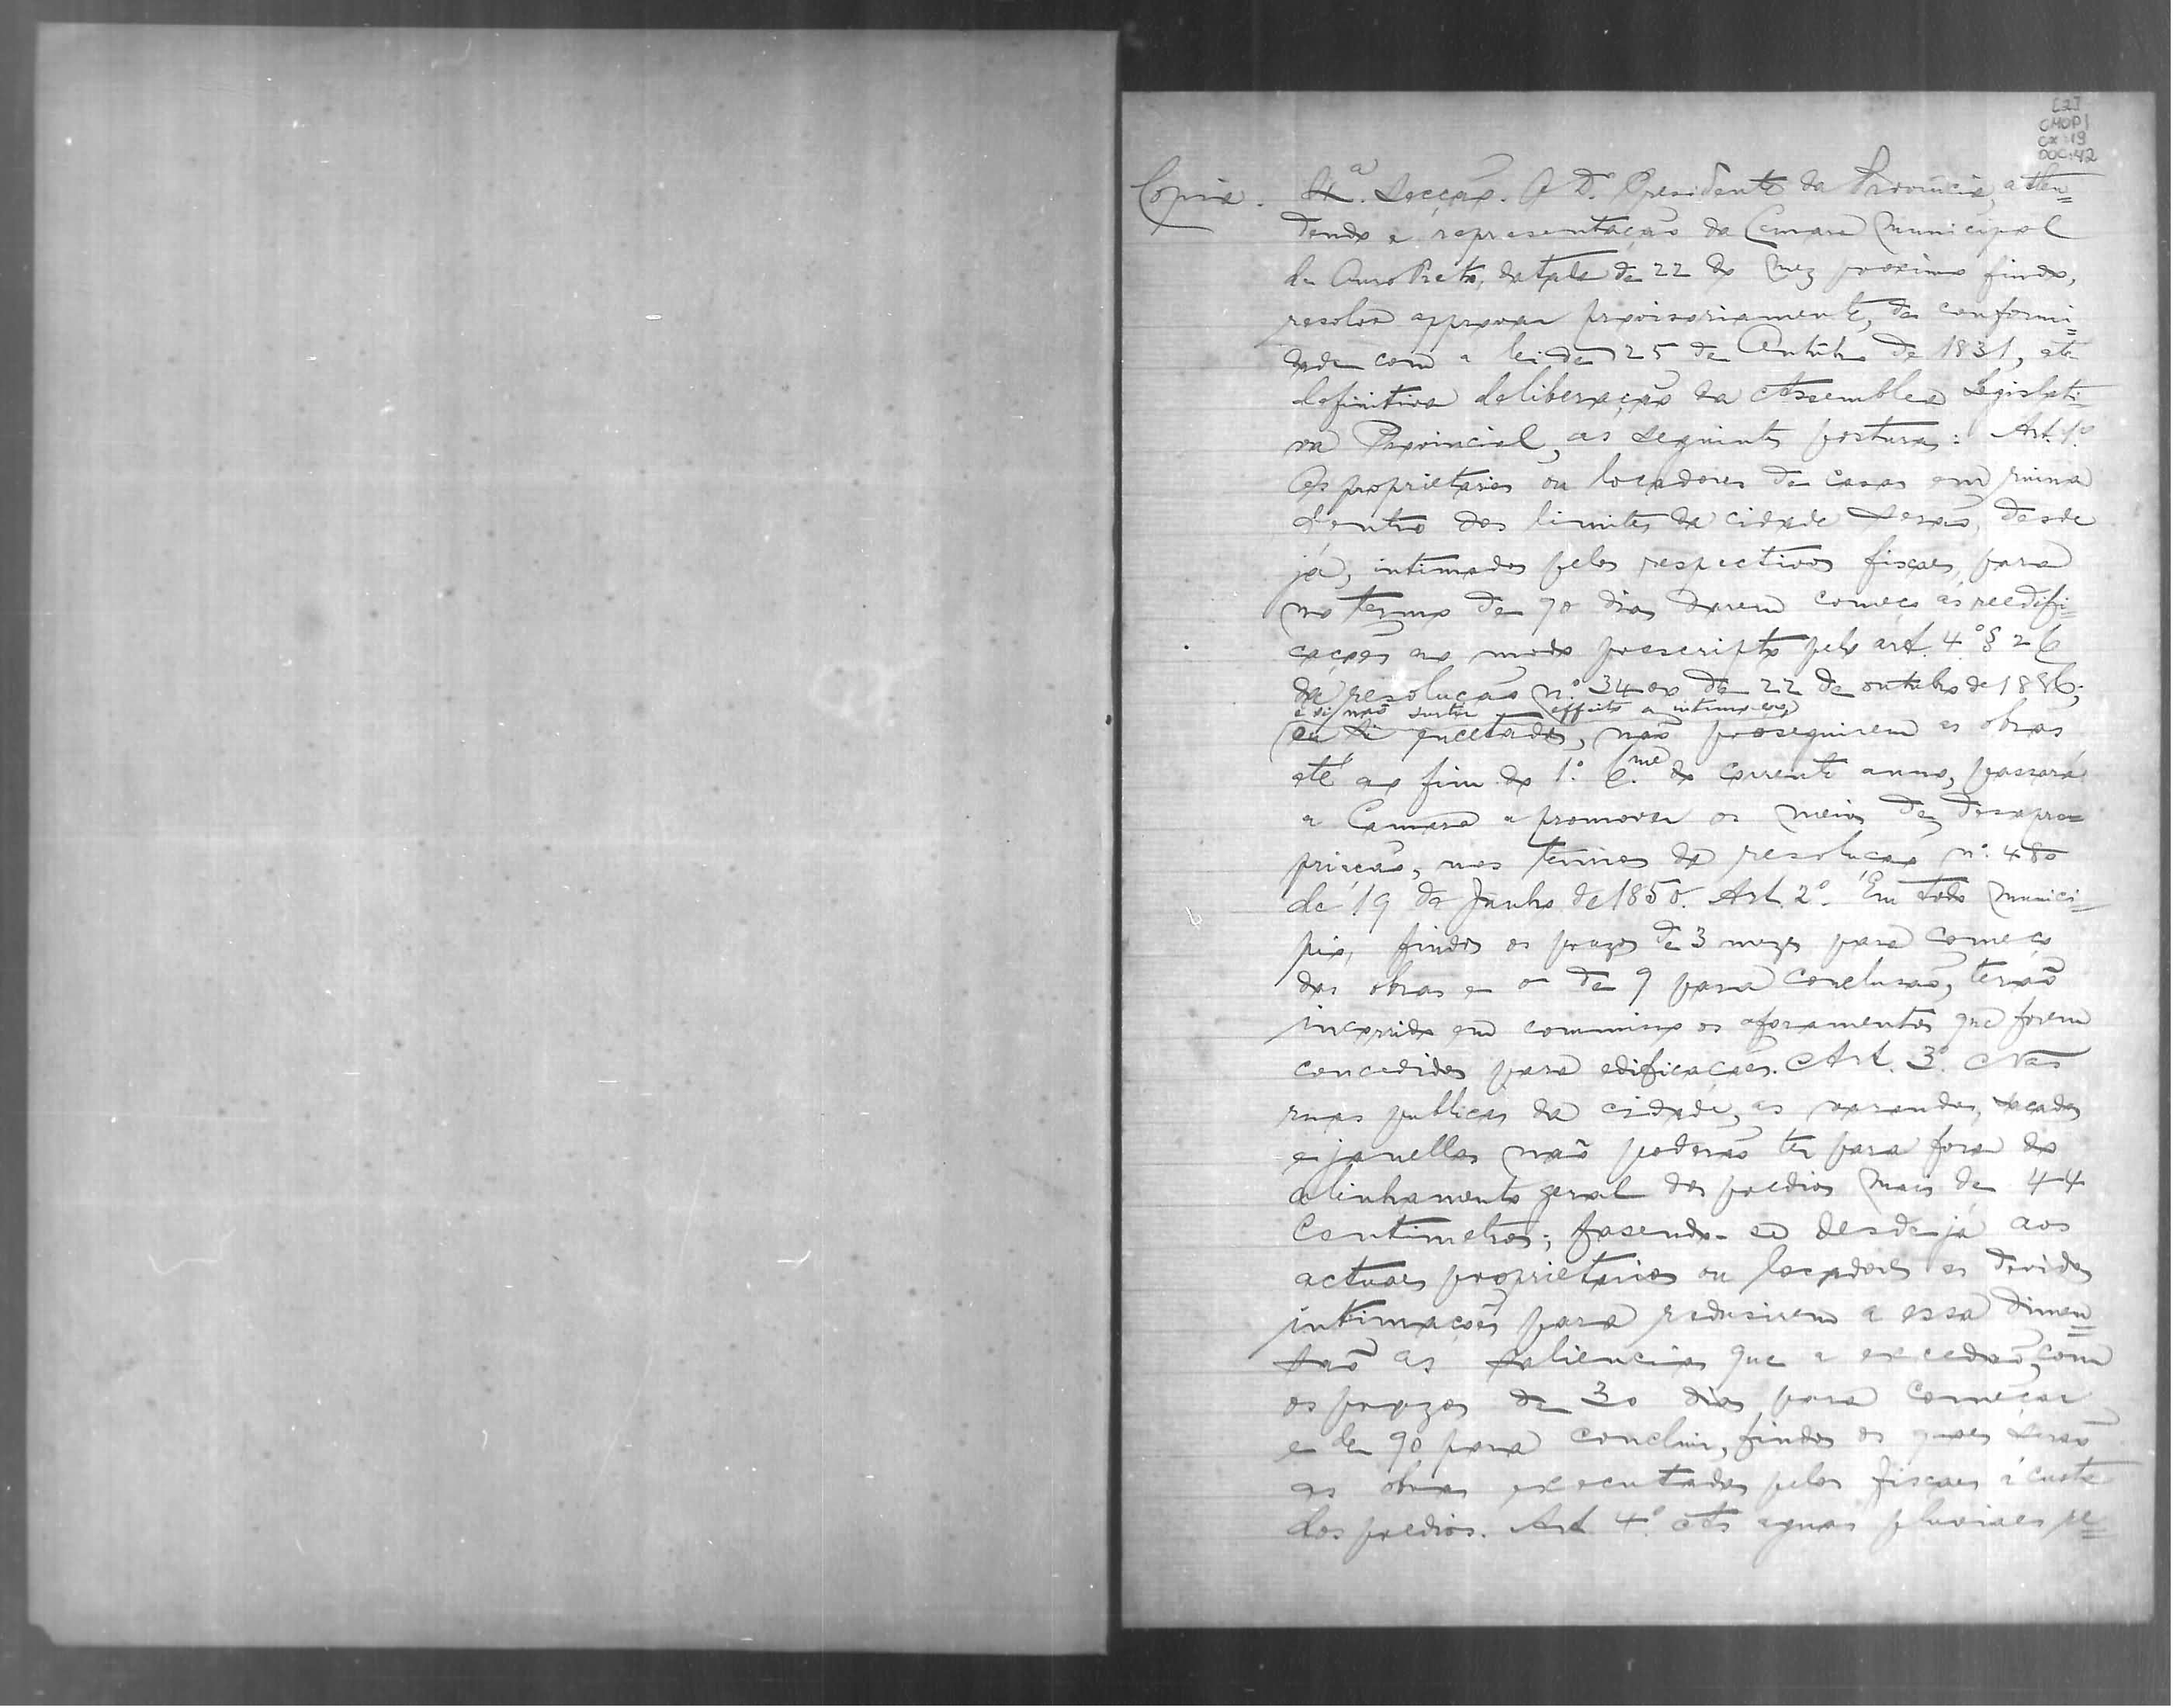 [2]
CMOP/
CX:19
DOC:42
Copia. 4ª Secção. O Dr. Presidente da Provincia, atten=
dendo a representação da Camara Municipal
de Ouro Preto, datada de 22 do mez proximo findo,
resolve approvar provisoriamente, de conformi=
dade com a lei de 25 de Outubro de 1831, até
definitiva deliberação da Assemblea Legislati-
va Provincial, as seguintes posturas: Art. 1º
Os proprietarios ou locadores de casas em ruina
dentro dos limites da cidade serão, desde
já, intimados pelos respectivos fiscaes, para
no termo de 90 dias darem começo as reedifi=
cações ao modo prescripto pelo art. 4º § 26
da resolução nº 34 de 22 de outubro de 1886;
e si não surtir effeito a intimação,
ou si encetadas, não proseguirem as obras
até ao fim do 1º 6.me do corrente anno, passará
a Camara a promover os meios de desapro=
priação, nos termos da resolução nº 480
de 19 de Junho de 1850. Art. 2º Em todo munici-
pio, findos os prazos de 3 mezes para começo
das obras e o de 9 para conclusão, terão
incorrido em commisso os aforamentos que forem
concedidos para edificações. Art. 3º Nas
ruas publicas da cidade, as varandas, sacadas
e janellas não poderão ter para fora do
alinhamento geral dos predios mais de 44
Centimetros; fasendo-se desde já aos
actuaes proprietarios ou locadores as devidas
intimações para redusirem a essa dimen=
são as saliencias que a excedão, com
os prazos de 30 dias para começar
e de 90 para concluir, findos os quaes serão
as obras executadas pelos fiscaes á custa
dos predios. Art 4º As aguas pluviaes se=